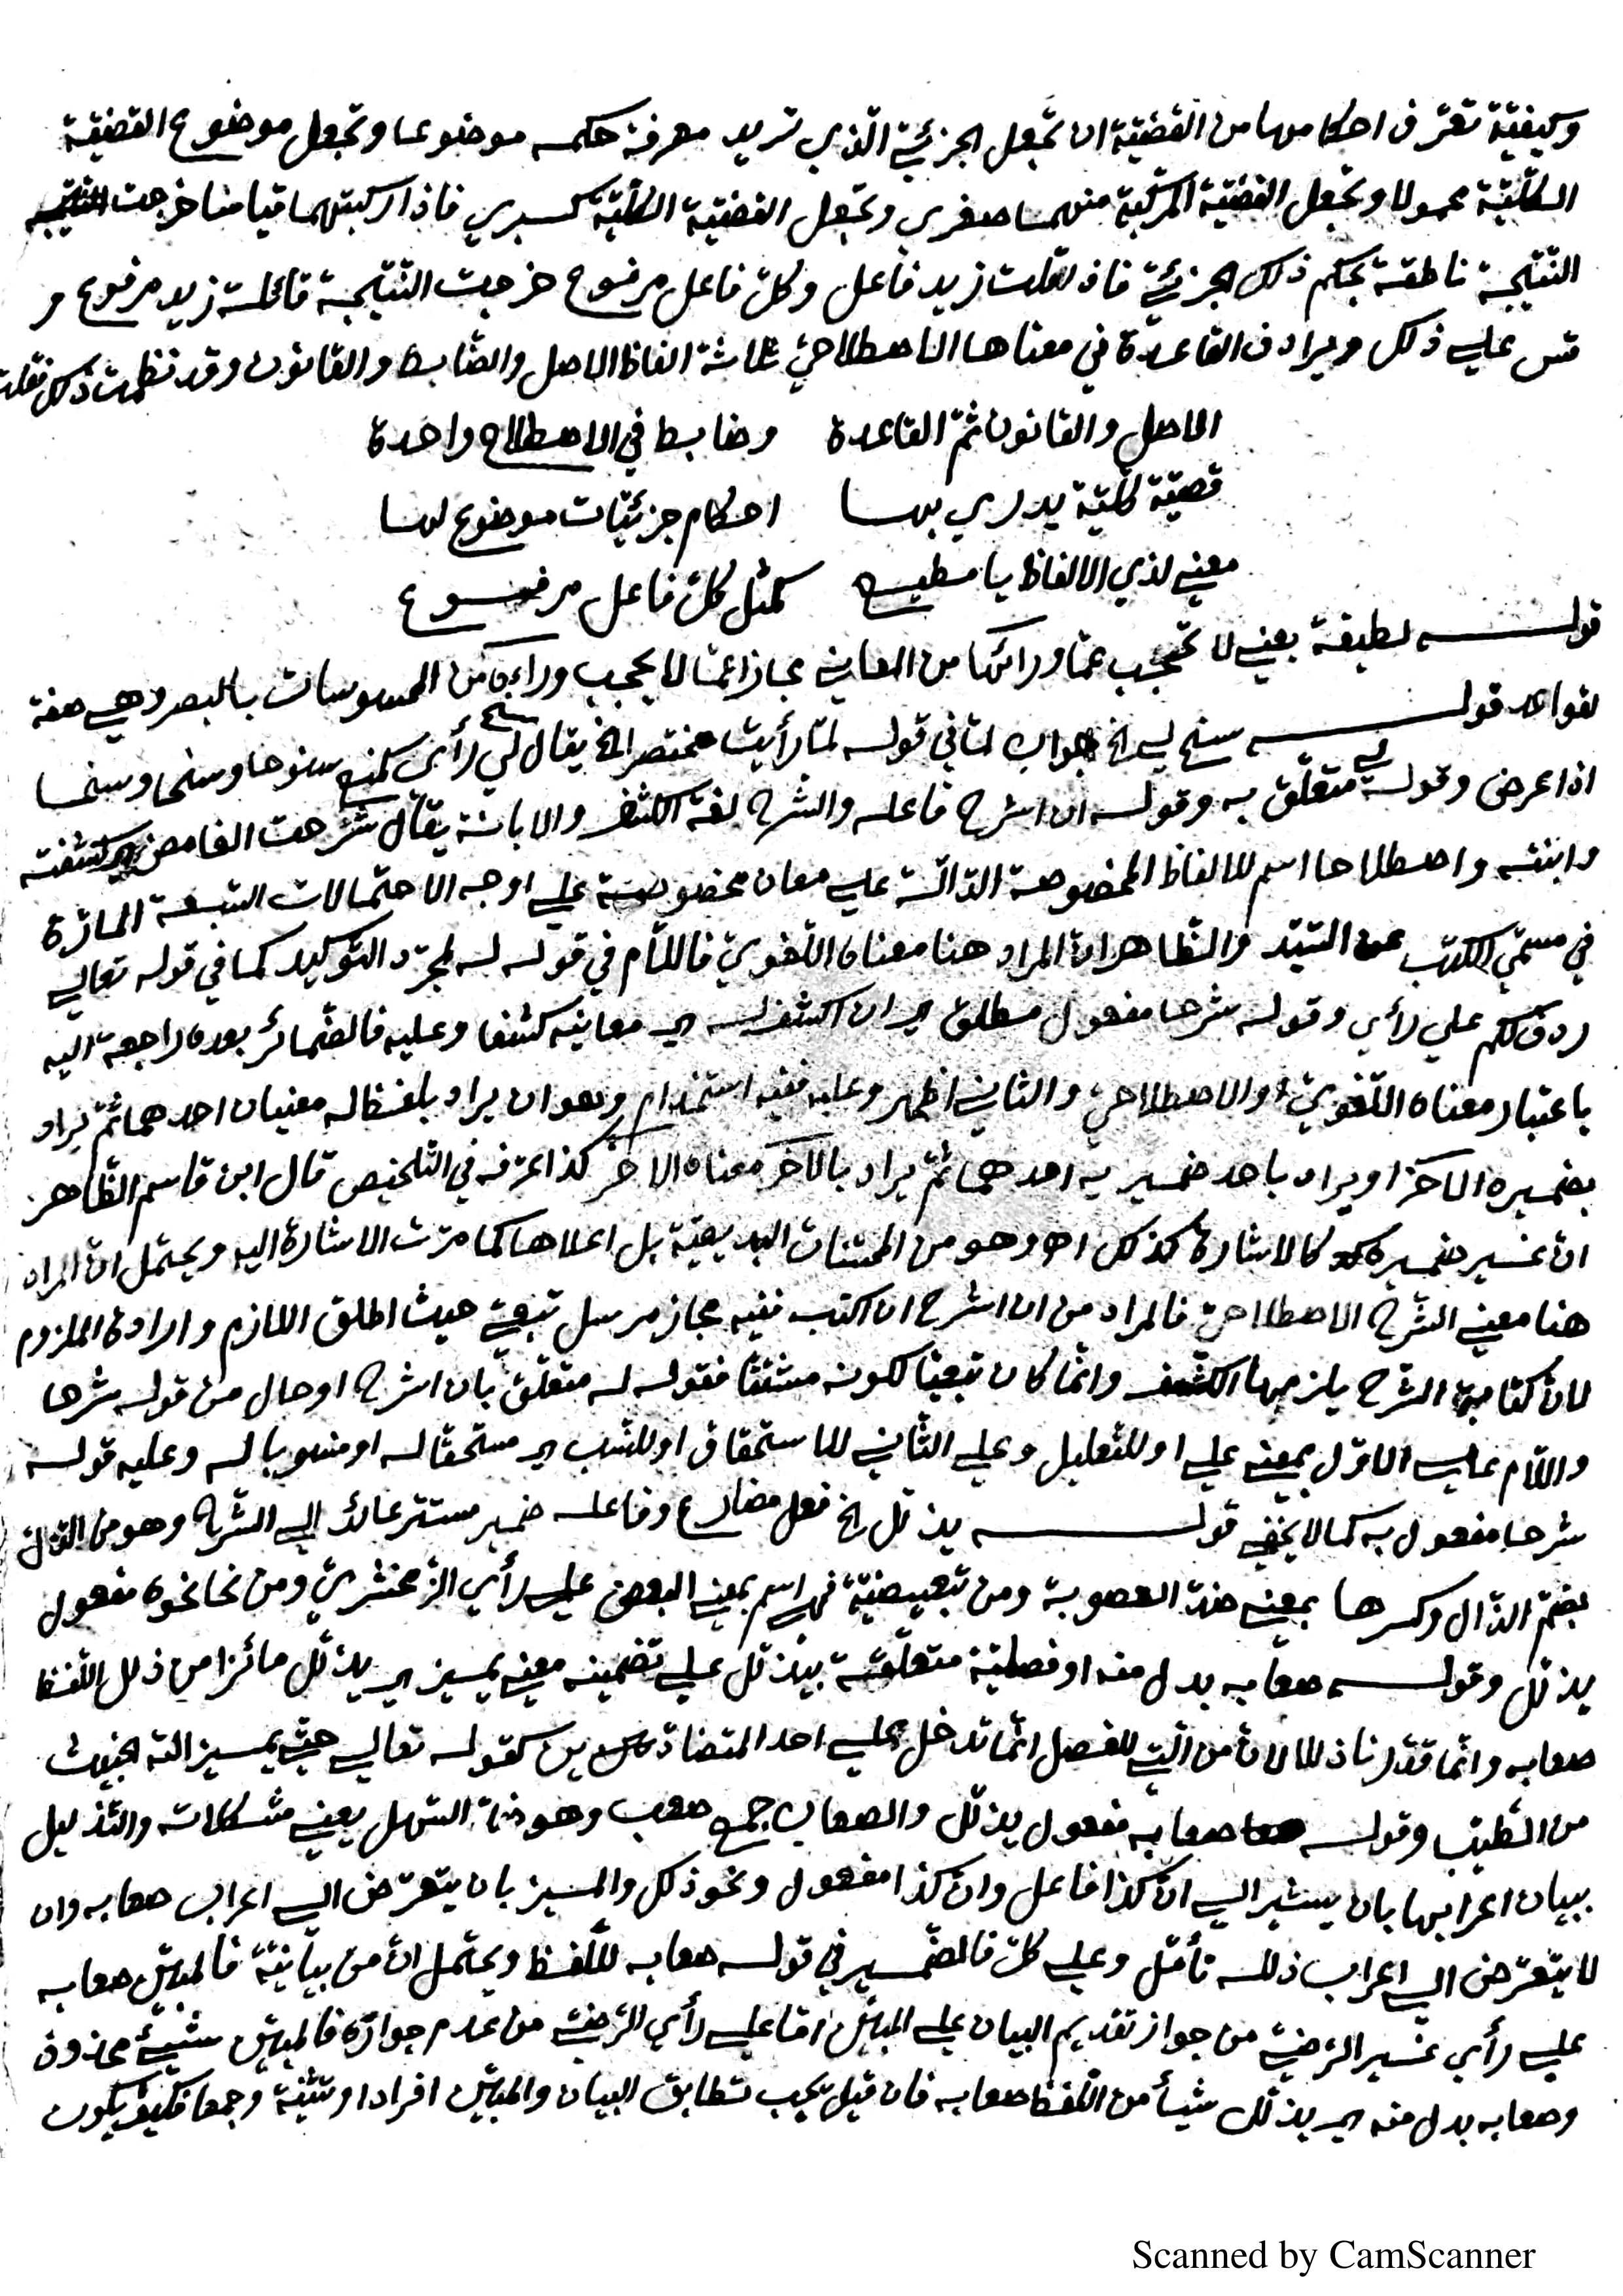 وكيفيّة تعرّف احكامها من القضيّة ان تجعل الجزئيّ الّذي تريد معرفة حكمه موضوعا وتجعل موضوع القضيّة
الكلّيّة محمولا وتجعل القضيّة المركّبة منهما صغرى وتجعل القضيّة الكلّيّة كبرى فاذا ركبتهما قياسا خرجت
النّتيجة ناطقة بحكم ذلك الجزئيّ فاذا قلت زيد فاعل وكلّ فاعل مرفوع خرجت النّتيجة قائلة زيد مرفوع و
قس على ذلك ويرادف القاعدة في معناها الاصطلاحيّ ثلاثة الفاظ الاصل والضّابط والقانون وقد نظمت ذلك فقلت
الاصل والقانون ثمّ القاعدة وضابط في الاصطلاح واحدة
قضيّة كلّيّة يدرى بها احكام جزئيّات موضوع لها
معنى لذي الالفاظ يا مطيع كمثل كلّ فاعل مرفوع
قوله لطيفة يعني لا تحجب عمّا ورائها من المعاني مجازا عمّا لا يحجب وراءه من المحسوسات بالبصر وهي صفة
لقواعد قوله سنح لي الخ جواب لمّا في قوله لمّا رأيت مختصر الخ يقال سنح لي رأي كمنع سنوحا وسنحا وسنحا
اذا عرض وقوله لي متعلّق به وقوله ان اشرح فاعله والشرح لغة الكشف والابانة يقال شرحت الغامض اي كشفته
وابنته واصطلاحا اسم للالفاظ المخصوصة الدّالّة على معان مخصوصة على اوجه الاحتمالات السّبعة المارّة
في مسمّى الكتب عن السّيّد والظّاهر انّ المراد هنا معناه اللّغويّ فاللّام في قوله له لمجرّد التّوكيد كما في قوله تعالى
ردف لكم على رأي وقوله شرحا مفعول مطلق اي ان اكشف له اي معانيه كشفا وعليه فالضّمائر بعده راجعة اليه
باعتبار معناه اللّغويّ او الاصطلاحيّ والثاني اظهر وعليه ففيه استخدام وهو ان يراد بلفظ له معنيان احدهما ثمّ يراد
بضميره الآخر او يراد باحد ضميريه احدهما ثمّ يراد بالآخر معناه الآخر كذا عرّفه في التلخيص قال ابن قاسم الظّاهر
انّ غير ضميره كالاشارة كذلك اه وهو من المحسّنات البديعيّة بل اعلاها كما مرّت الاشارة اليه ويحتمل انّ المراد
هنا معنى الشّرح الاصطلاحيّ فالمراد من ان اشرح ان اكتب ففيه مجاز مرسل تبعيّ حيث اطلق اللازم واراد الملزوم
لانّ كتابة الشرح يلزمها الكشف وانّما كان تبعيّا لكونه مشتقّا فقوله له متعلّق بان اشرح او حال من قوله شرحا
واللّام على الاوّل بمعنى على او للتعليل وعلى الثّاني للاستحقاق او للنّسب اي مستحقّا له او منسوبا له وعليه قوله
شرحا مفعول به كما لا يخفى قوله يذلّل الخ فعل مضارع وفاعله ضمير مستتر عائد الى الشّرح وهو من الذّلّ
بضمّ الذّال وكسرها بمعنى ضدّ الصعوبة ومن تبعيضيّة فهي اسم بمعنى البعض على رأي الزّمخشريّ ومن نحا نحوه مفعول
يذلّل وقوله صعابه بدل منه او فصليّة متعلّقة بيذلّل على تضمينه معنى يميز اي يذلّل مائزا من ذلل اللّفظ
صعابه وانّما قدّرنا ذللا لانّ من الّتي للفصل انّما تدخل على احد المتضادّين كقوله تعالى حتّى يميز الله الخبيث
من الطّيّب وقوله صعابه مفعول يذلّل والصعاب جمع صعب وهو ضدّ السّهل يعني مشكلاته والتّذليل
ببيان اعرابها بان يشير الى انّ كذا فاعل وانّ كذا مفعول ونحو ذلك والميز بان يتعرّض الى اعراب صعابه وان
لا يتعرّض الى اعراب ذلله تأمّل وعلى كلّ فالضّمير في قوله صعابه للّفظ ويحتمل انّ من بيانيّة فالمبيّن صعابه
على رأي غير الرّضيّ من جواز تقديم البيان على المبيّن امّا على رأي الرّضيّ من عدم جوازه فالمبيّن شيئ محذوف
وصعابه بدل منه اي يذلّل شيأ من اللّفظ صعابه فان قيل يجب تطابق البيان والمبيّن افرادا وتثنية وجمعا فكيف يكون
Scanned by CamScanner